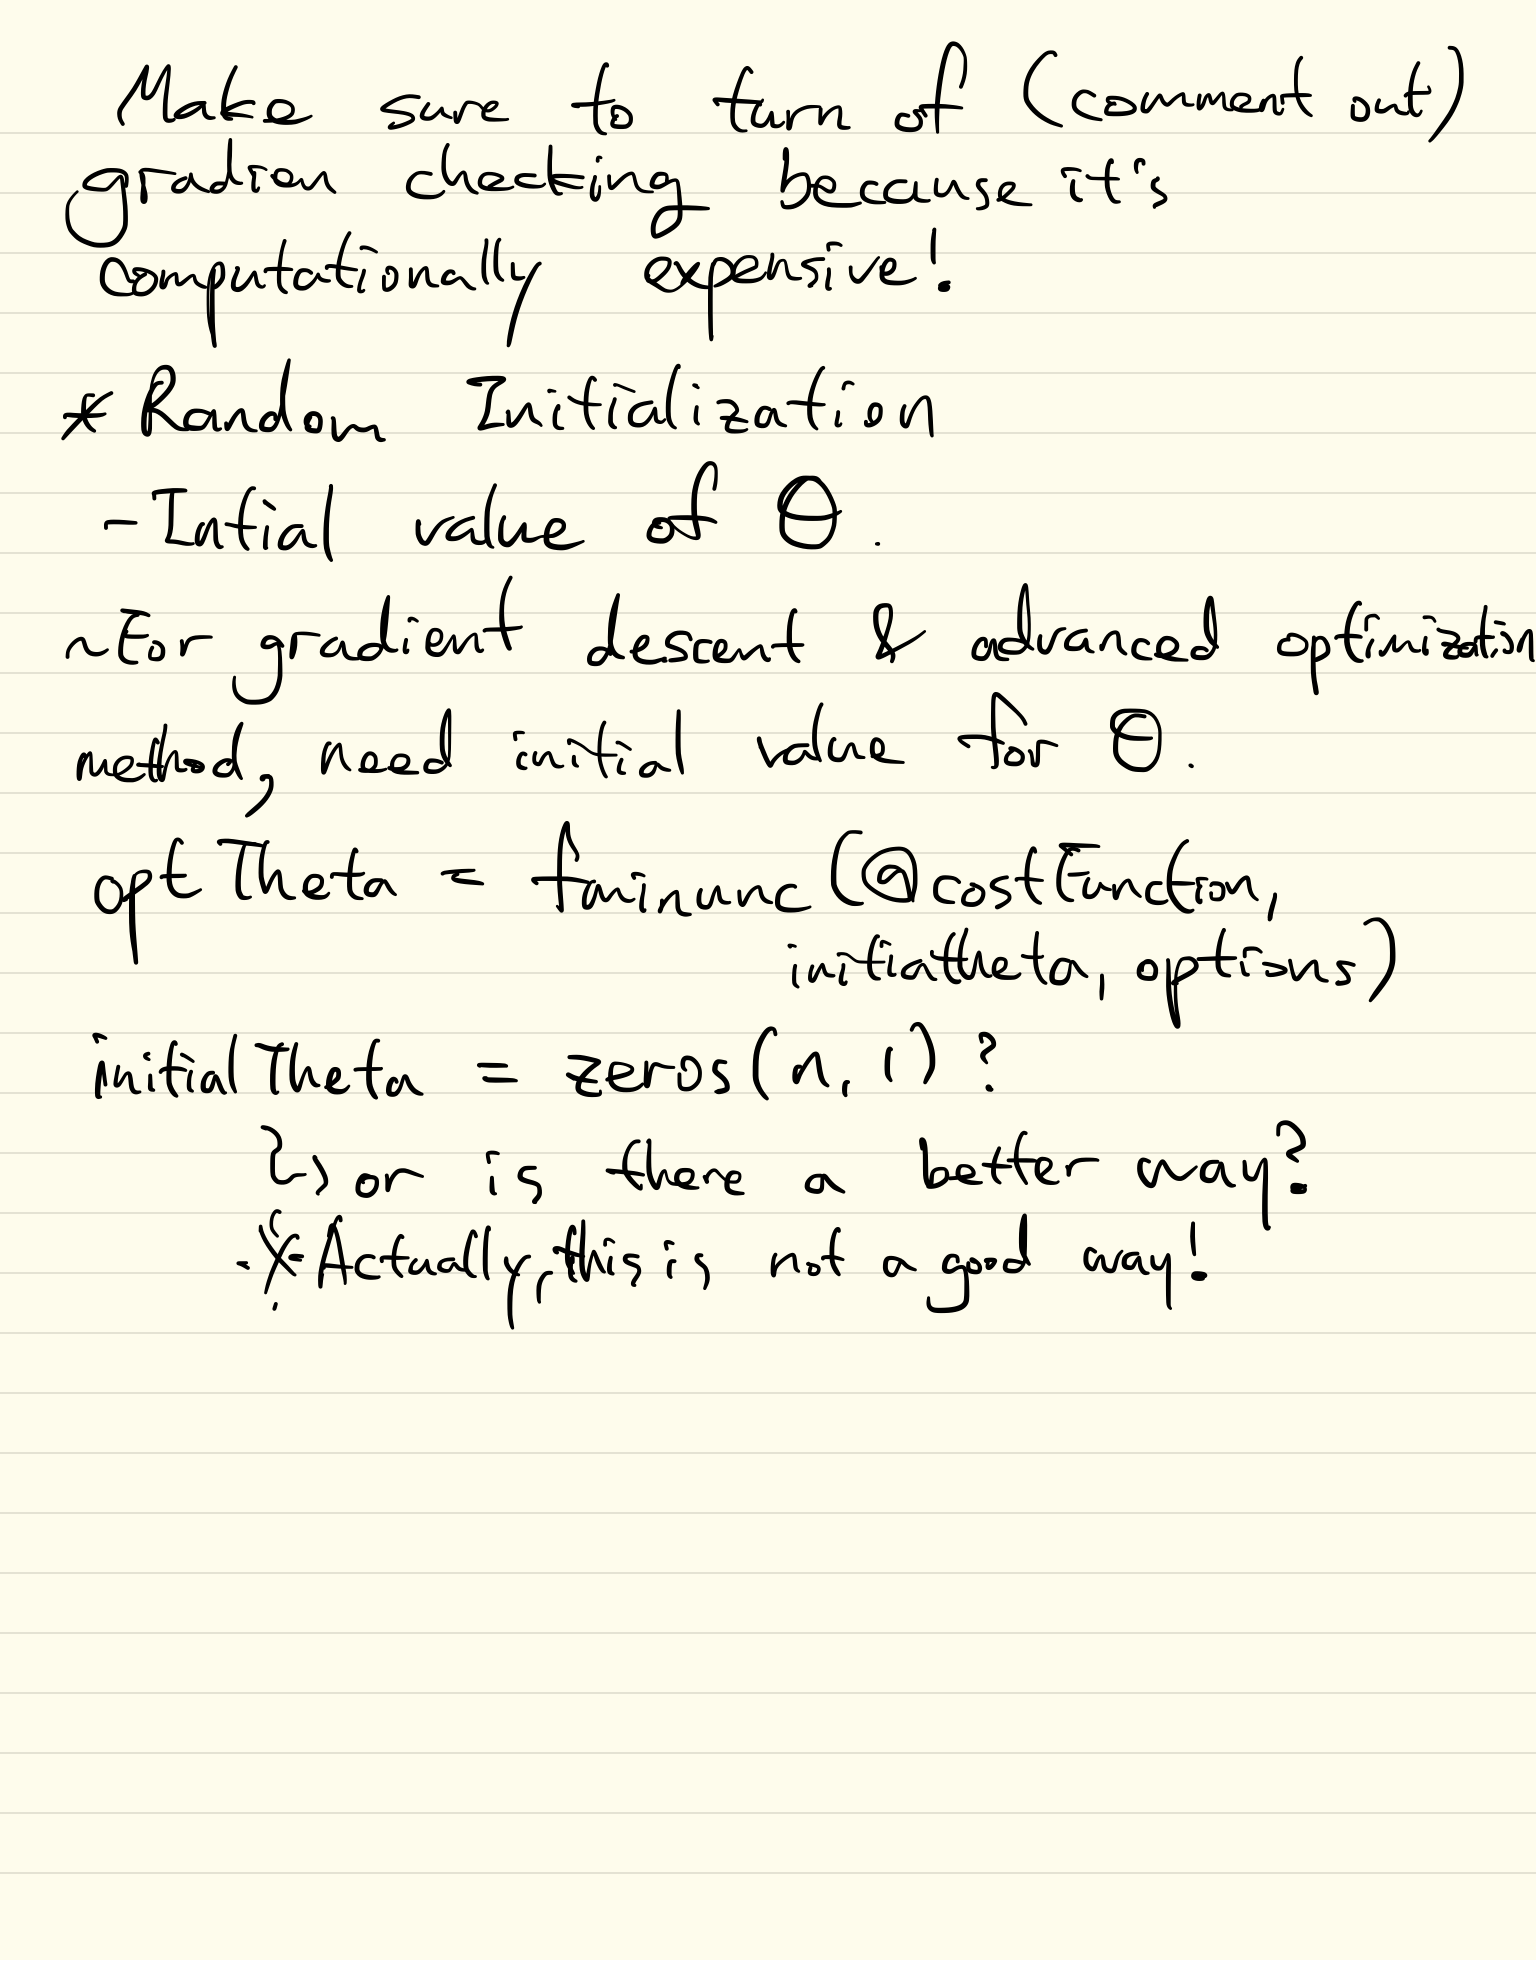 Make sure to turn of (comment out)
gradien checking because it's
computationally expensive!
* Random Initialization
- Intial value of Θ.
~For gradient descent & advanced optimization
method, need initial value for Θ.
optTheta = fminunc(@costFunction,
initiattheta, options)
initialTheta = zeros(n, 1)?
↳ or is there a better way?
※ Actually, this is not a good way!